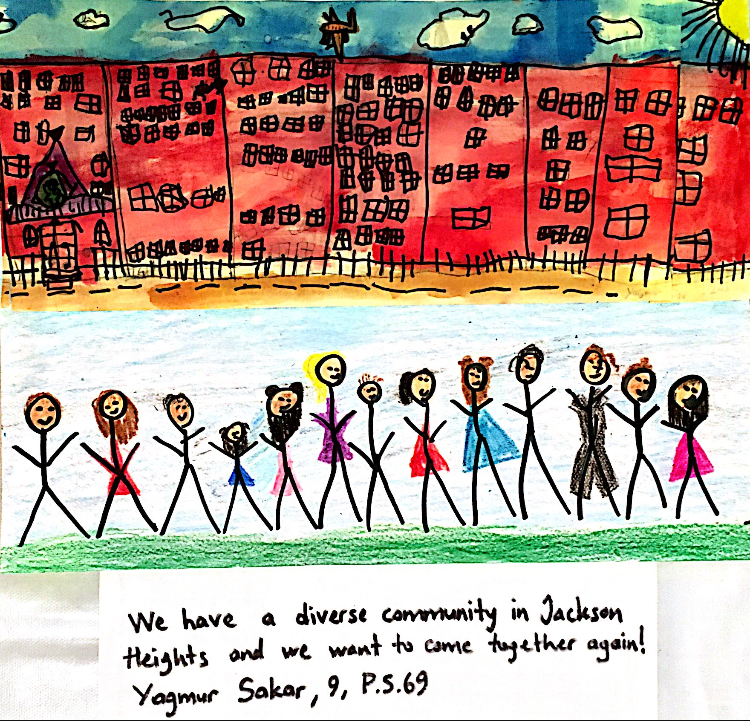 We have a diverse community in Jackson
Heights and we want to come together again!
Yagmur Sakar, 9, P.S.69